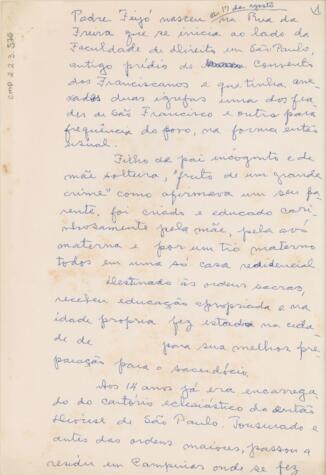 1
a 17 de agosto
Padre Feijó nasceu na Rua da
Freira que se inicia ao lado da
Faculdade de Direito em São Paulo,
antigo prédio do Convento
dos Franciscanos e que tinha ane-
xadas duas igrejas uma dos fra-
des de São Francisco e outra para
frequência do povo, na forma então
usual.
Filho de pai incógnito e de
mãe solteira, "fruto de um grande
crime" como afirmava um seu pa-
rente, foi criado e educado cari-
nhosamente pela mãe, pela avó
materna e por um tio materno
todos em uma só casa residencial
Destinado às ordens sacras,
recebeu educação apropriada e na
idade propria fez estada na cida
de de para sua melhor pre
paração para o sacerdócio.
Aos 14 anos já era encarrega
do do cartório eclesiástico da então
Diócese de São Paulo. Tonsurado e
antes das ordens maiores, passou a
residir em Campinas onde se fez
CMP 2.2.3.530